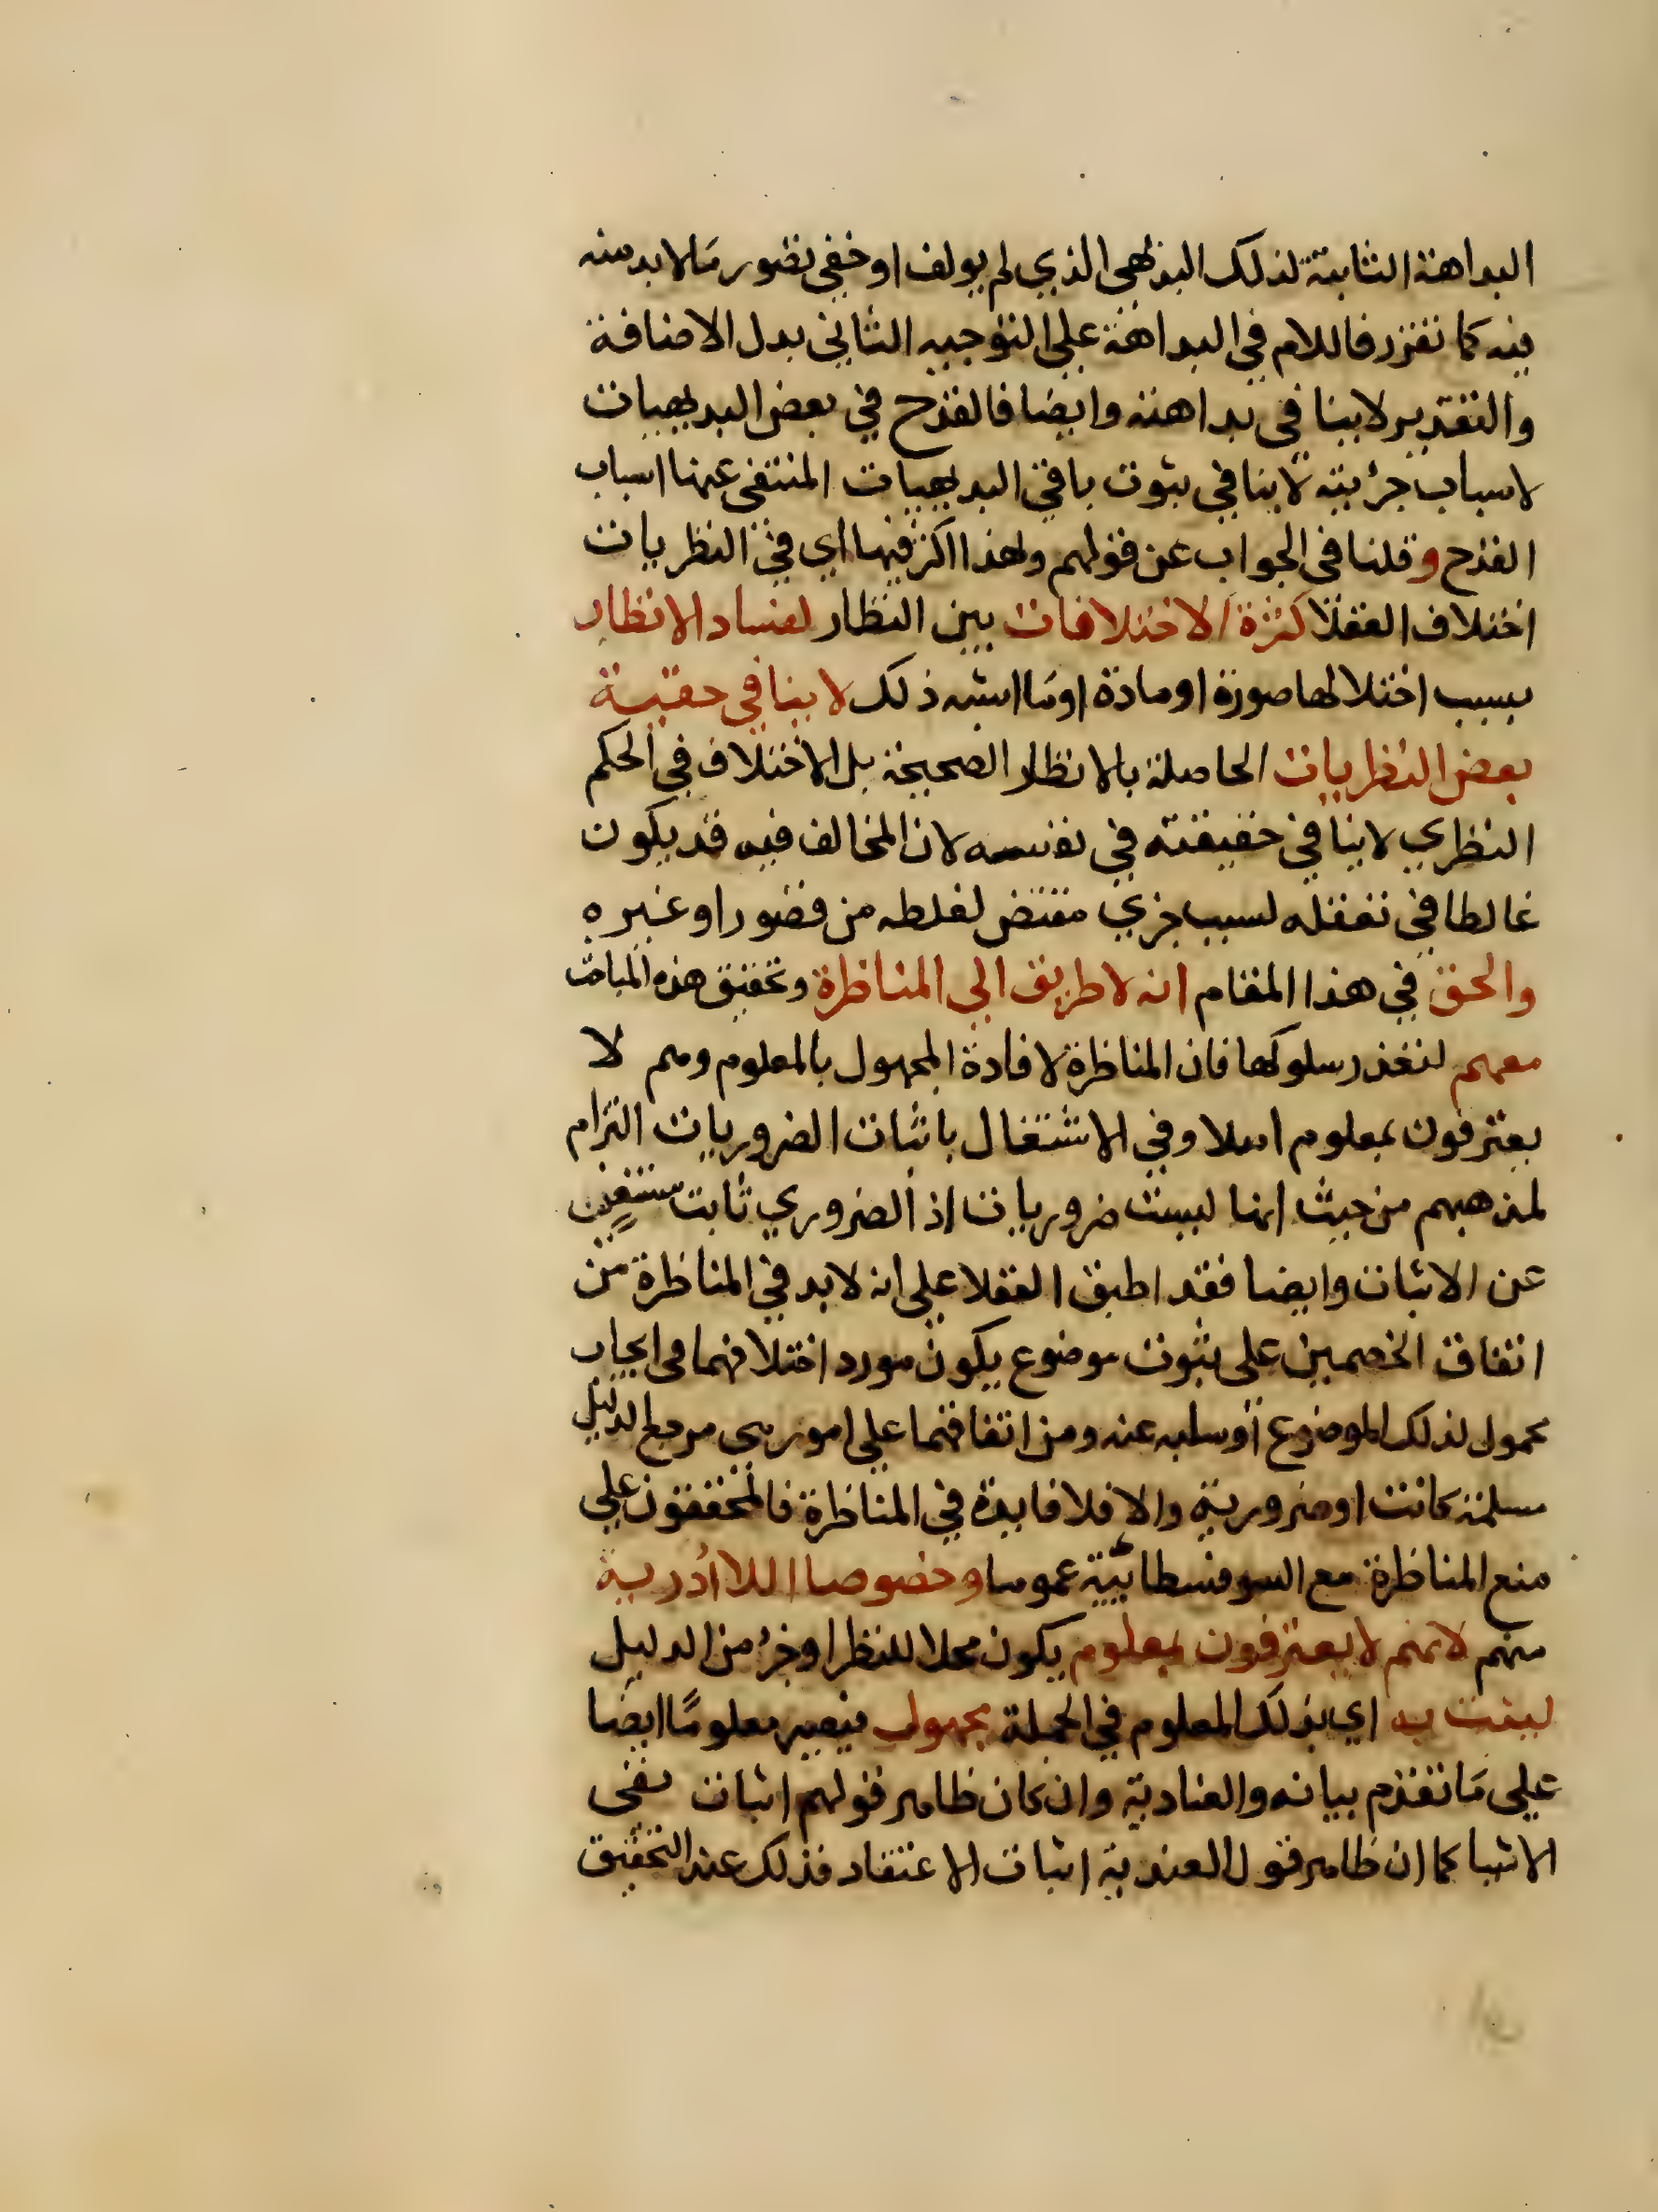 البداهة الثابتة لذلك البديهي الذي لم يولف او خفي تصور ما لا بد منه
فيه كما تقرر فاللام في البداهة علي التوجيه الثاني بدل الاضافة
والتقدير لا ينافي بداهته وايضا فالقدح في بعض البديهيات
لاسباب جزئية لا ينافي ثبوت باقي البديهيات المنتفي عنها اسباب
القدح وقلنا في الجواب عن قولهم ولهذا اكثر فيها اي في النظريات
اختلاف العقلا كثرة الاختلافات بين النظار لفساد الانظار
بسبب اختلالها صورة او مادة او ما اشبه ذلك لا ينافي حقية
بعض النظريات الحاصلة بالانظار الصحيحة بل الاختلاف في الحكم
النظري لا ينافي حقيقته في نفسه لان المخالف فيه قد يكون
غالطا في تعقله لسبب جزي مقتض لغلطه من قصور او غيره
والحق في هذا المقام انه لا طريق الي المناظرة وتحقيق هذه المباحث
معهم لتعذر سلوكها فان المناظرة لافادة المجهول بالمعلوم وهم لا
يعترفون بمعلوم اصلا وفي الاشتغال باثبات الضروريات التزام
لمذهبهم من حيث انها ليست ضروريات اذ الضروري ثابت مستغن
عن الاثبات وايضا فقد اطبق العقلا علي انه لا بد في المناظرة من
اتفاق الخصمين علي ثبوت موضوع يكون مورد اختلافهما في ايجاب
محمول لذلك الموضوع او سلبه عنه ومن اتفاقهما علي امور هي مرجع الدليل
مسلمة كانت او ضرورية والا فلا فايدة في المناظرة فالمحققون علي
منع المناظرة مع السوفسطائية عموما وخصوصا اللاادرية
منهم لانهم لا يعترفون بمعلوم يكون محلا للنظر او جزء من الدليل
ليثبت به اي بذلك المعلوم في الجملة مجهول فيصير معلومًا ايضا
علي ما تقدم بيانه والعنادية وان كان ظاهر قولهم اثبات نفي
الاشيا كما ان ظاهر قول العندية اثبات الاعتقاد فذلك عند التحقيق